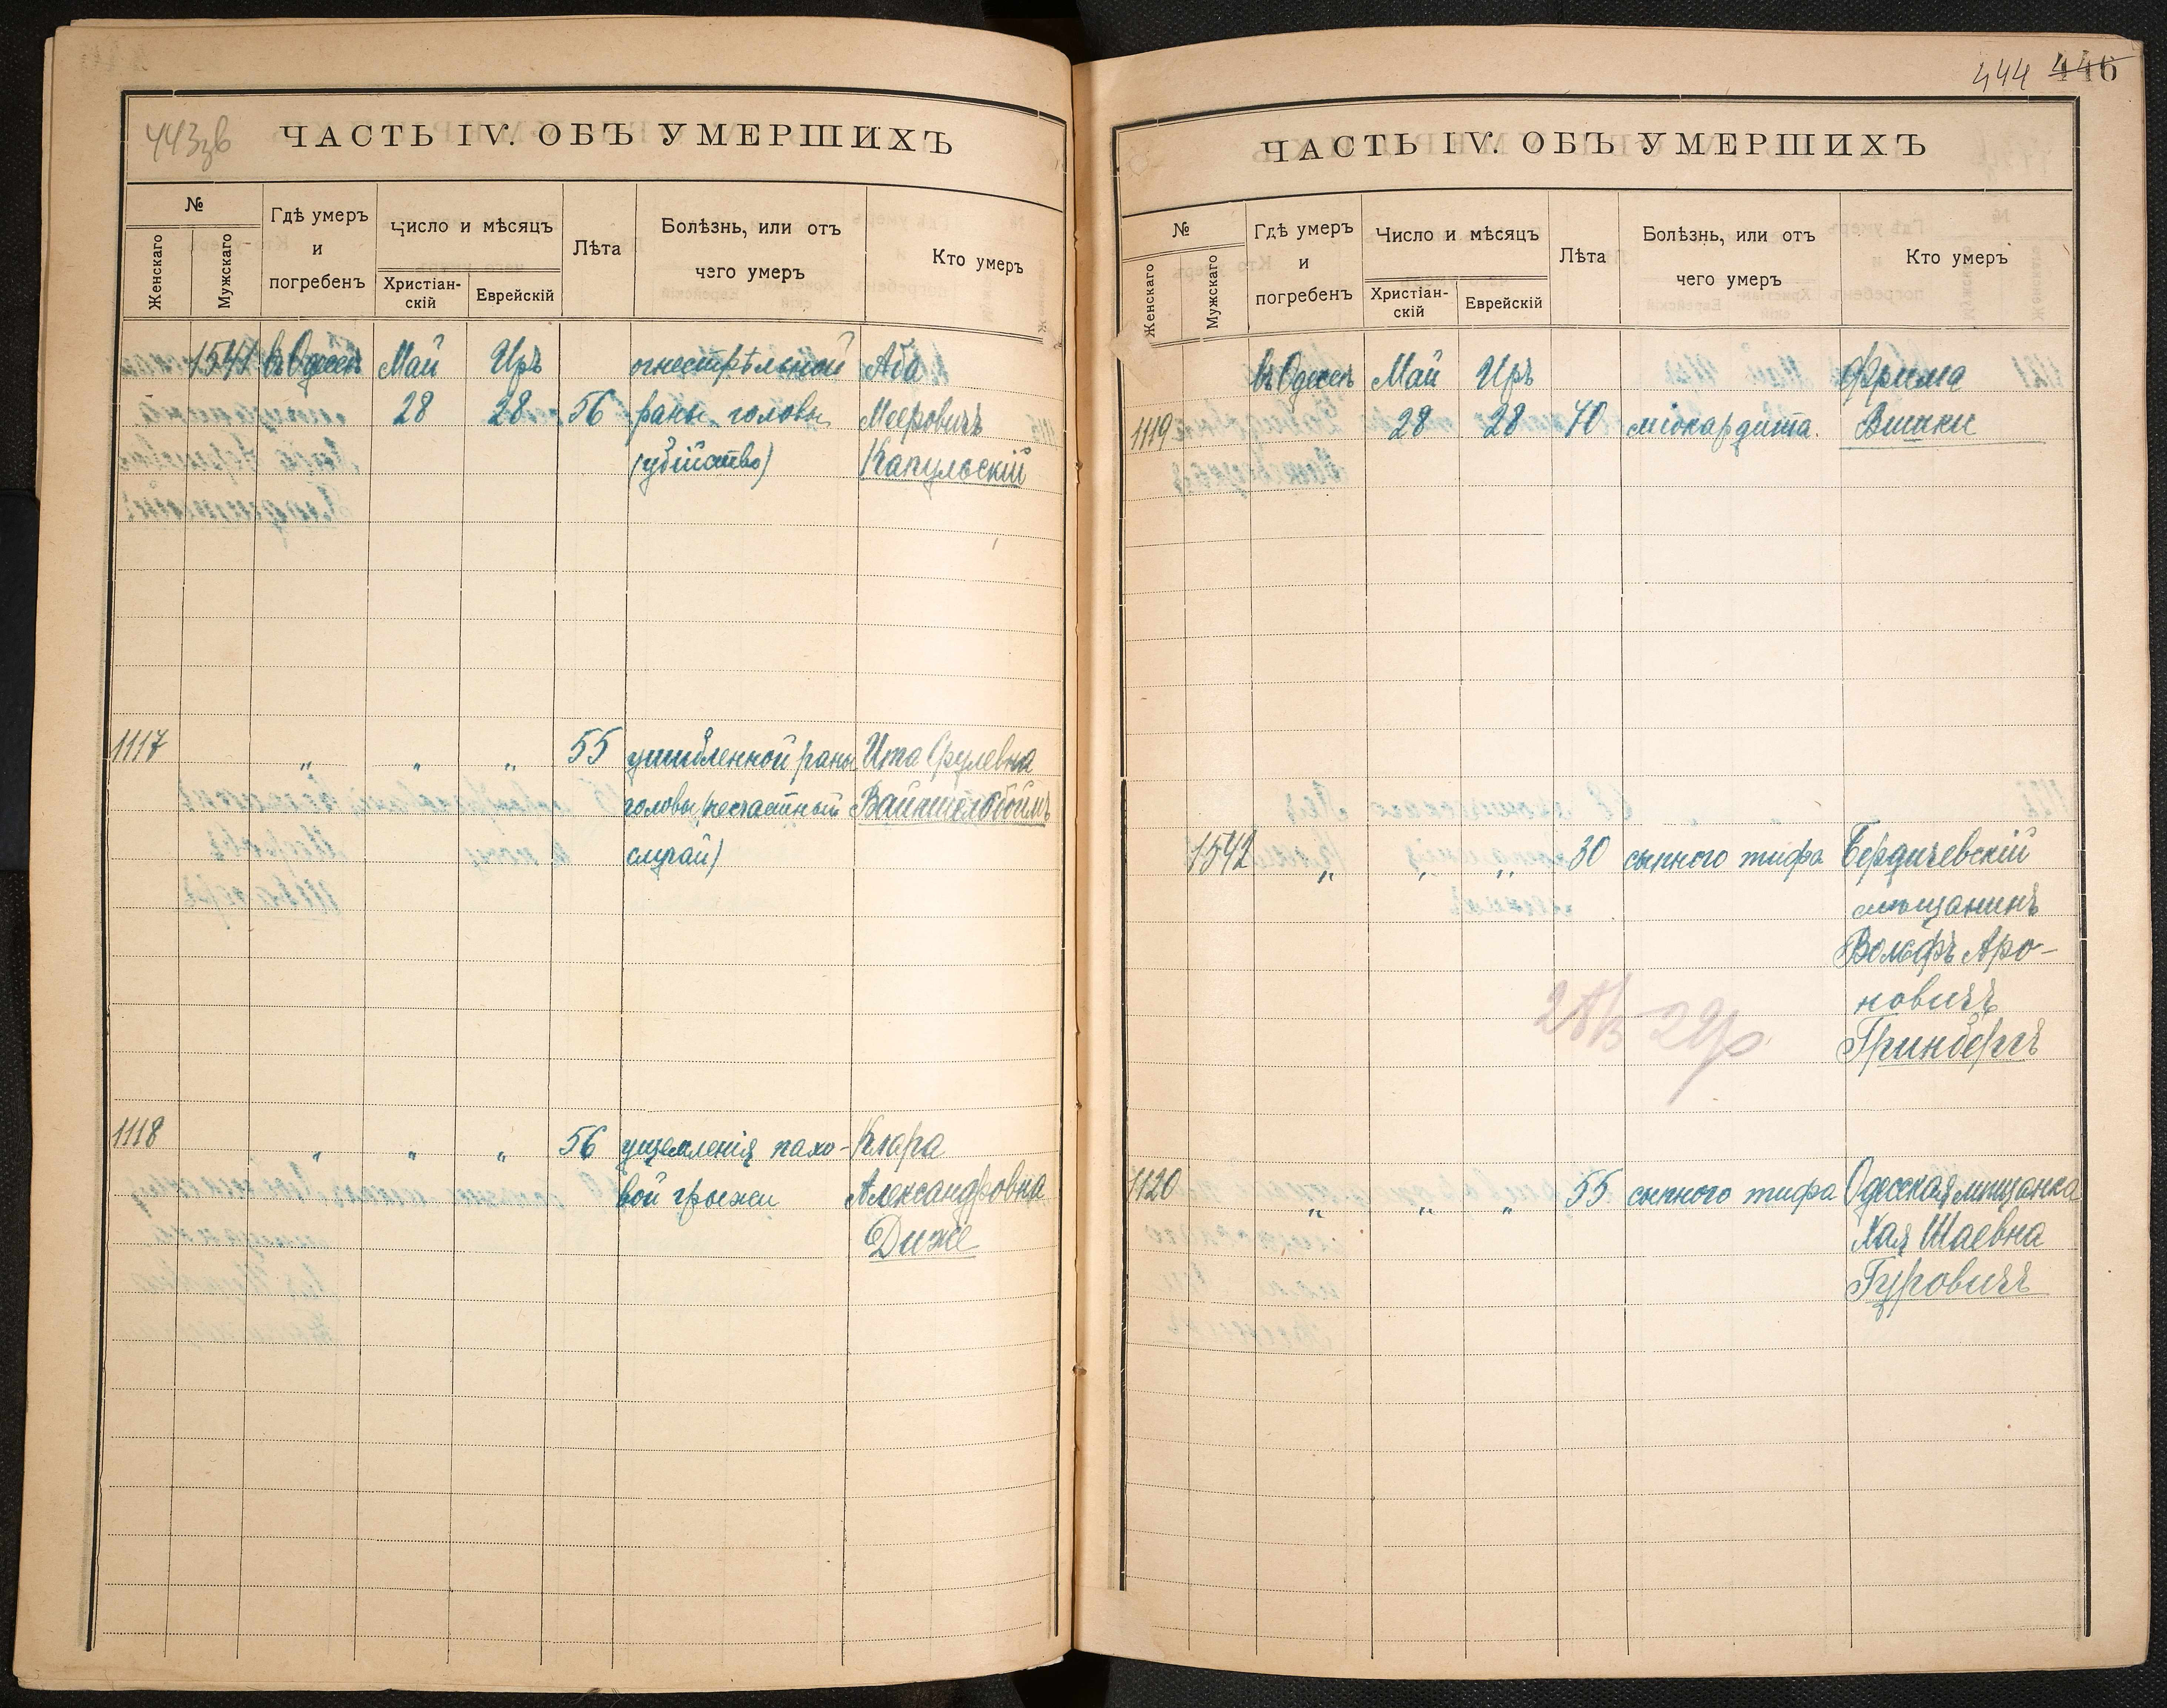 443зв
ЧАСТЬ IV. ОБЪ УМЕРШИХЪ
№
Женскаго
Мужскаго
Гдѣ умеръ
и
погребенъ
Число и мѣсяцъ
Христіан-
скій
Еврейскій
Лѣта
Болѣзнь, или отъ
чего умеръ
Кто умеръ
1541 въ Одессѣ Май Иръ огнестрѣльной Аба
28 28 56 раны головы Мееровичъ
(убійство) Капульскій
1117 " " " 55 ушибленной раны Ита Срулевна
головы (несчастный Вайншельбоймъ
случай)
1118 " " " 56 ущемленія пахо- Клара
вой грыжи Александровна
Диже
444 446
ЧАСТЬ IV. ОБЪ УМЕРШИХЪ
№
Женскаго
Мужскаго
Гдѣ умеръ
и
погребенъ
Число и мѣсяцъ
Христіан-
скій
Еврейскій
Лѣта
Болѣзнь, или отъ
чего умеръ
Кто умеръ
въ Одессѣ Май Иръ Фрима
1119 28 28 70 міокардита. Вишки
1542 " " " 30 сыпного тифа Бердичевскій
мѣщанинъ
Вольфъ Аро-
новичъ
Гринбергъ
1120 " " " 55 сыпного тифа Одесская мѣщанка
Хая Шаевна
Гуровичъ